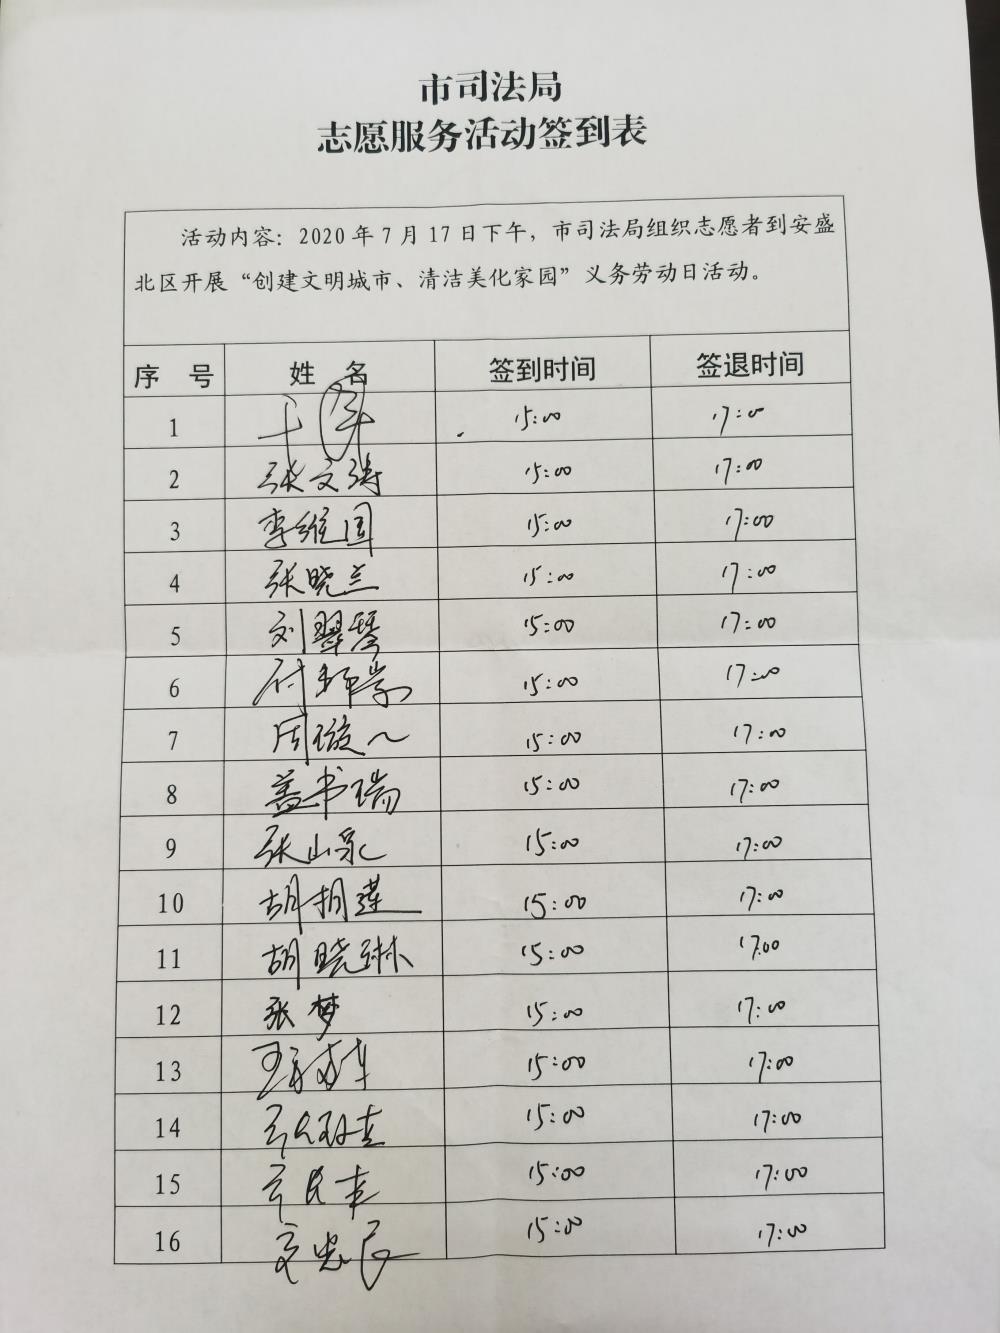 市司法局
志愿服务活动签到表
活动内容：2020年7月17日下午，市司法局组织志愿者到安盛
北区开展“创建文明城市、清洁美化家园”义务劳动日活动。
序 号 姓 名 签到时间 签退时间
1 15:00 17:00
2 张文涛 15:00 17:00
3 李维国 15:00 17:00
4 张晓兰 15:00 17:00
5 刘翠琴 15:00 17:00
6 15:00 17:00
7 15:00 17:00
8 盖书瑞 15:00 17:00
9 张山泉 15:00 17:00
10 15:00 17:00
11 胡晓琳 15:00 17:00
12 张梦 15:00 17:00
13 15:00 17:00
14 15:00 17:00
15 15:00 17:00
16 15:00 17:00